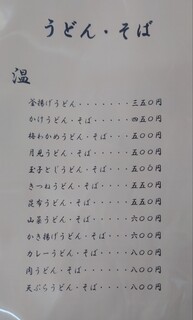 うどん・そば
温
釜揚げうどん・・・・・・・三五〇円
かけうどん・そば・・・・四五〇円
梅わかめうどん・そば・・五〇〇円
月見うどん・そば・・・・五〇〇円
玉子とじうどん・そば・・五〇〇円
きつねうどん・そば・・・五五〇円
昆布うどん・そば・・・・五五〇円
山菜うどん・そば・・・・六〇〇円
かき揚げうどん・そば・・六〇〇円
カレーうどん・そば・・・八〇〇円
肉うどん・そば・・・・・八〇〇円
天ぷらうどん・そば・・・八〇〇円